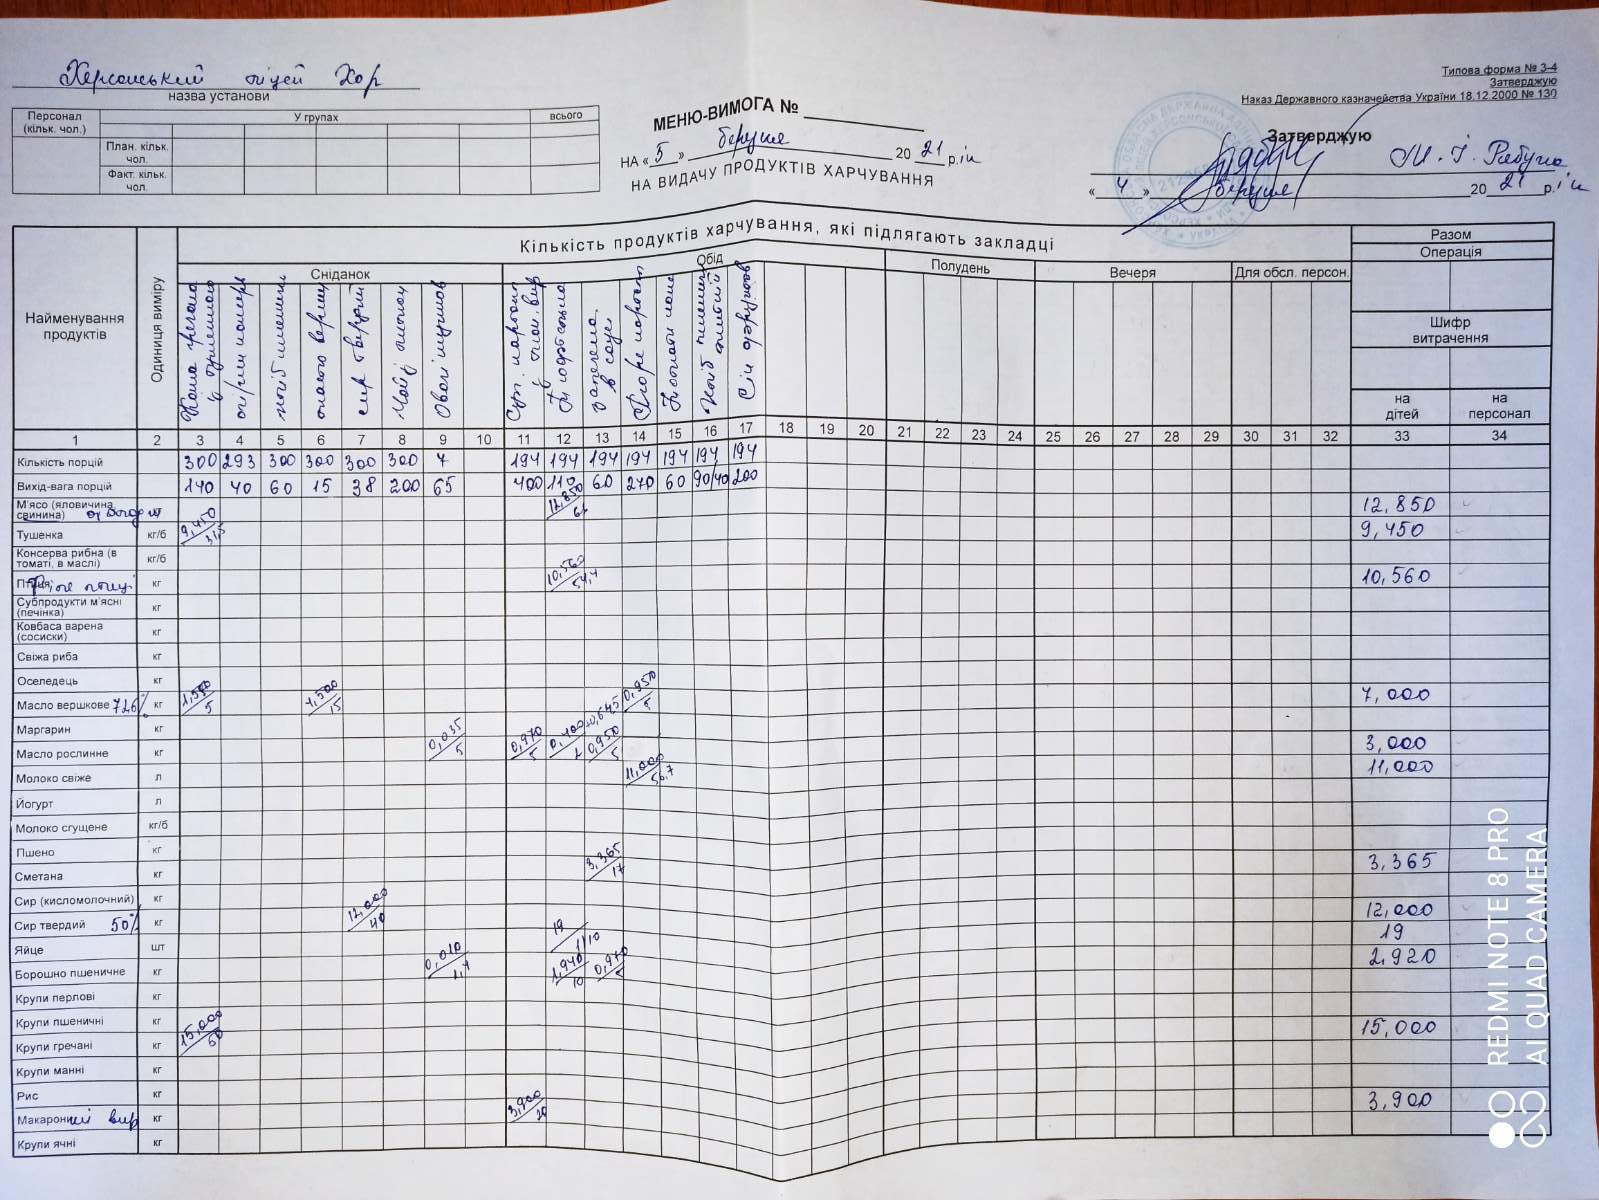 Херсонський ліцей ХОР
назва установи
Типова форма № 3-4
Затверджую
Наказ Державного казначейства України 18.12.2000 № 130
Персонал (кільк. чол.) У групах всього
План. кільк. чол.
Факт. кільк. чол.
МЕНЮ-ВИМОГА №
НА « 5 » березня 20 21 р.ік
НА ВИДАЧУ ПРОДУКТІВ ХАРЧУВАННЯ
Затверджую
М. І. Рябуха
« 4 » березня 20 21 р.ік
Найменування продуктів
Одиниця виміру
Кількість продуктів харчування, які підлягають закладці
Разом
Операція
Сніданок Обід Полудень Вечеря Для обсл. персон.
Шифр витрачення
на дітей на персонал
Каша гречана
сир твердий
1 2 3 4 5 6 7 8 9 10 11 12 13 14 15 16 17 18 19 20 21 22 23 24 25 26 27 28 29 30 31 32 33 34
Кількість порцій 300 293 300 300 300 300 7 194 194 194 194 194 194 194
Вихід-вага порцій 140 40 60 15 38 200 65 400 110 60 270 60 90/40 200
М'ясо (яловичина, свинина) 12,850 12,850
Тушенка кг/б 9,450 31,5 9,450
Консерва рибна (в томаті, в маслі) кг/б
Філе птиці кг 10,560 54,4 10,560
Субпродукти м'ясні (печінка) кг
Ковбаса варена (сосиски) кг
Свіжа риба кг
Оселедець кг
Масло вершкове 72,6% кг 1,500 5 4,500 15 0,950 5 7,000
Маргарин кг
Масло рослинне кг 0,035 5 0,970 5 0,400 2 0,950 5 3,000
Молоко свіже л 11,000 56,7 11,000
Йогурт л
Молоко сгущене кг/б
Пшено кг
Сметана кг 3,365 17 3,365
Сир (кисломолочний) кг
Сир твердий 50% кг 12,000 40 12,000
Яйце шт 19 1/10 19
Борошно пшеничне кг 0,010 1,4 1,940 10 0,970 5 2,920
Крупи перлові кг
Крупи пшеничні кг
Крупи гречані кг 15,000 50 15,000
Крупи манні кг
Рис кг
Макаронні вир кг 3,900 20 3,900
Крупи ячні кг
REDMI NOTE 8 PRO
AI QUAD CAMERA